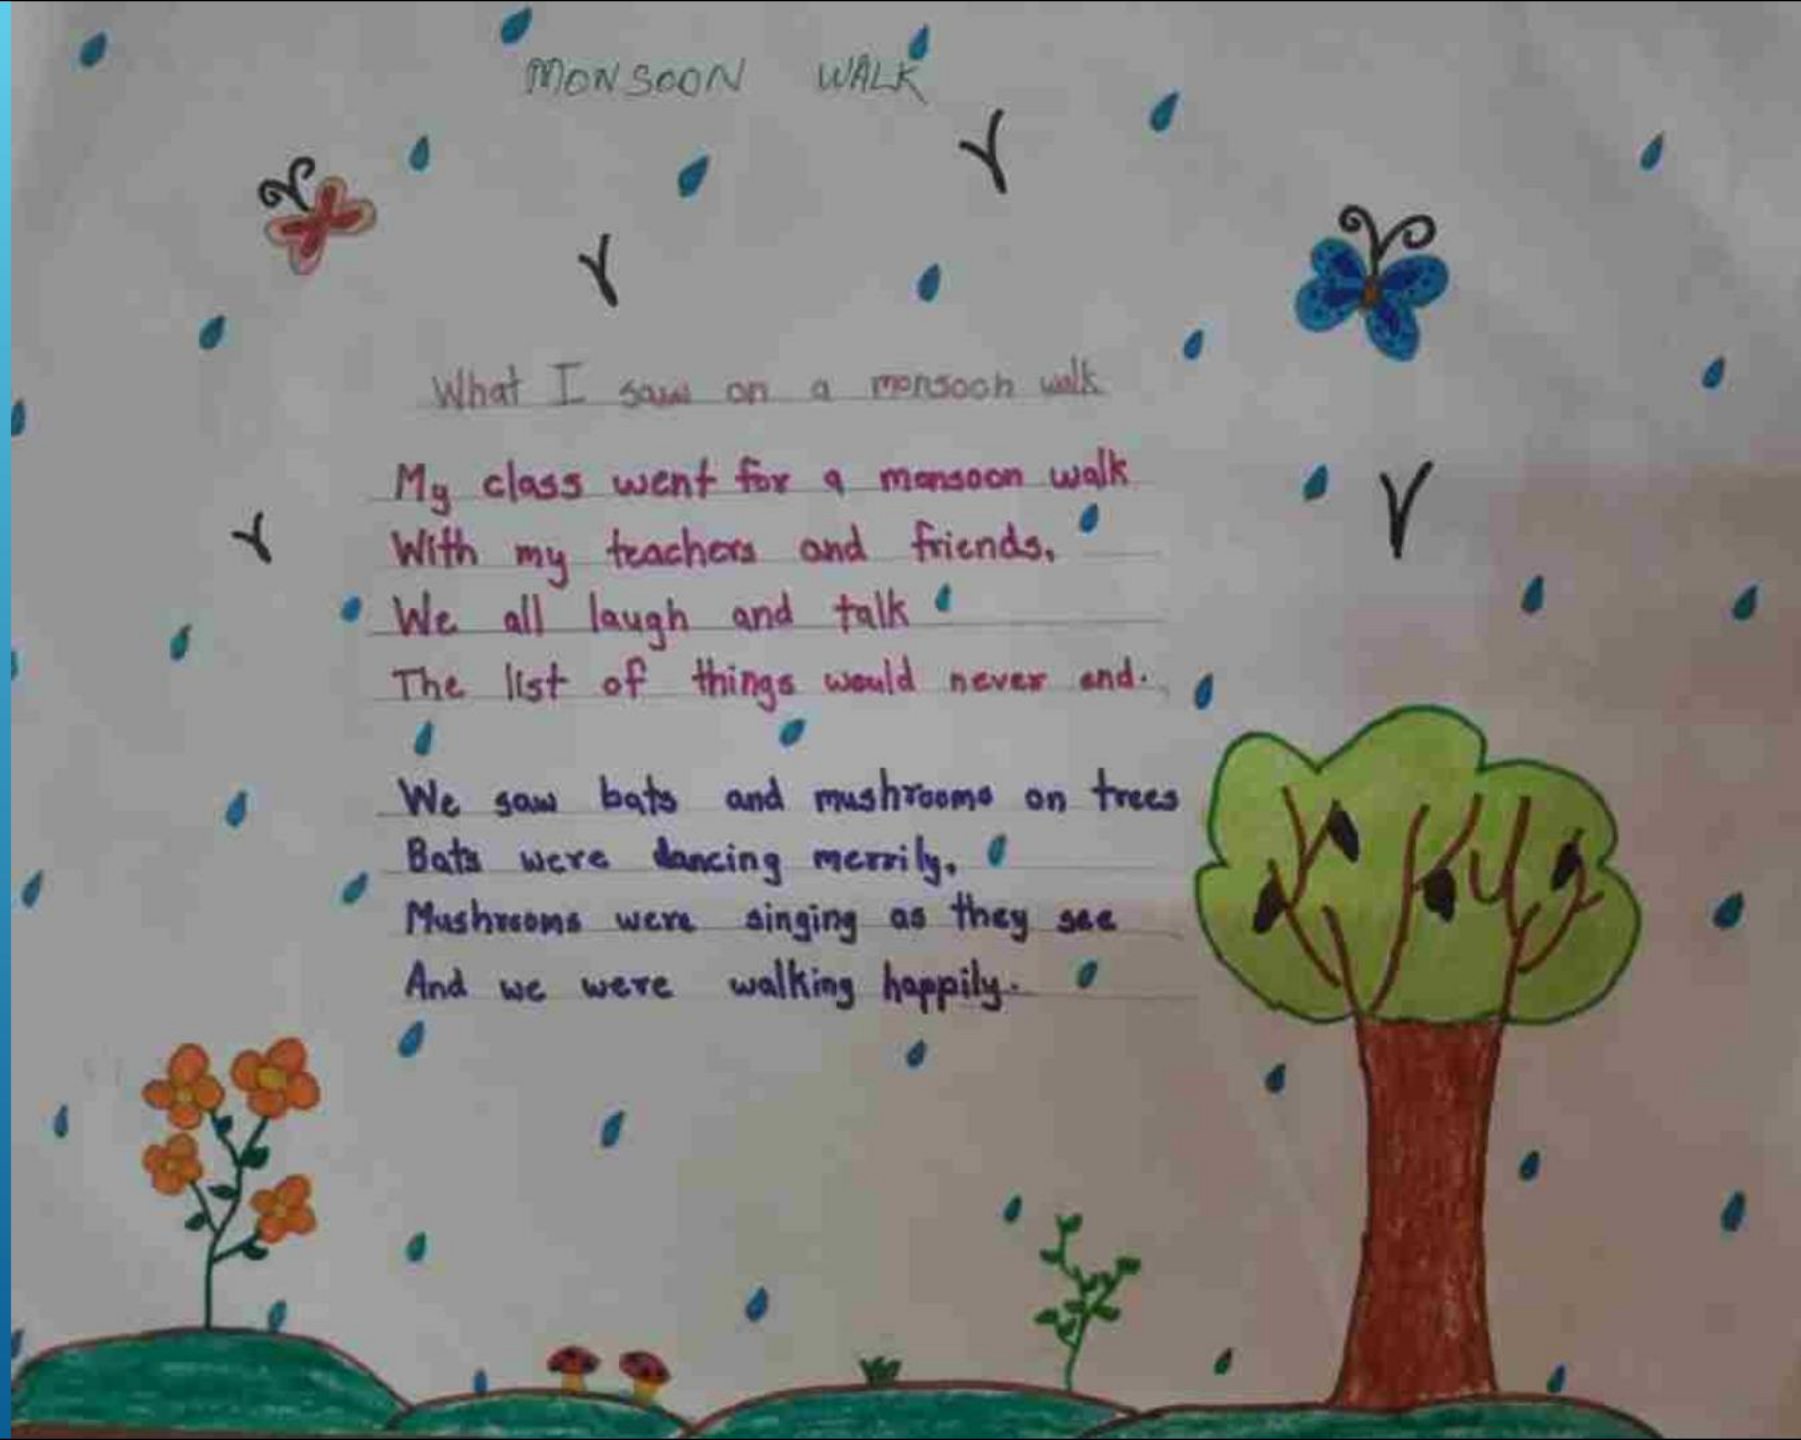 MONSOON WALK
What I saw on a monsoon walk
My class went for a monsoon walk
With my teachers and friends,
We all laugh and talk
The list of things would never end.
We saw bats and mushrooms on trees
Bats were dancing merrily,
Mushrooms were singing as they see
And we were walking happily.